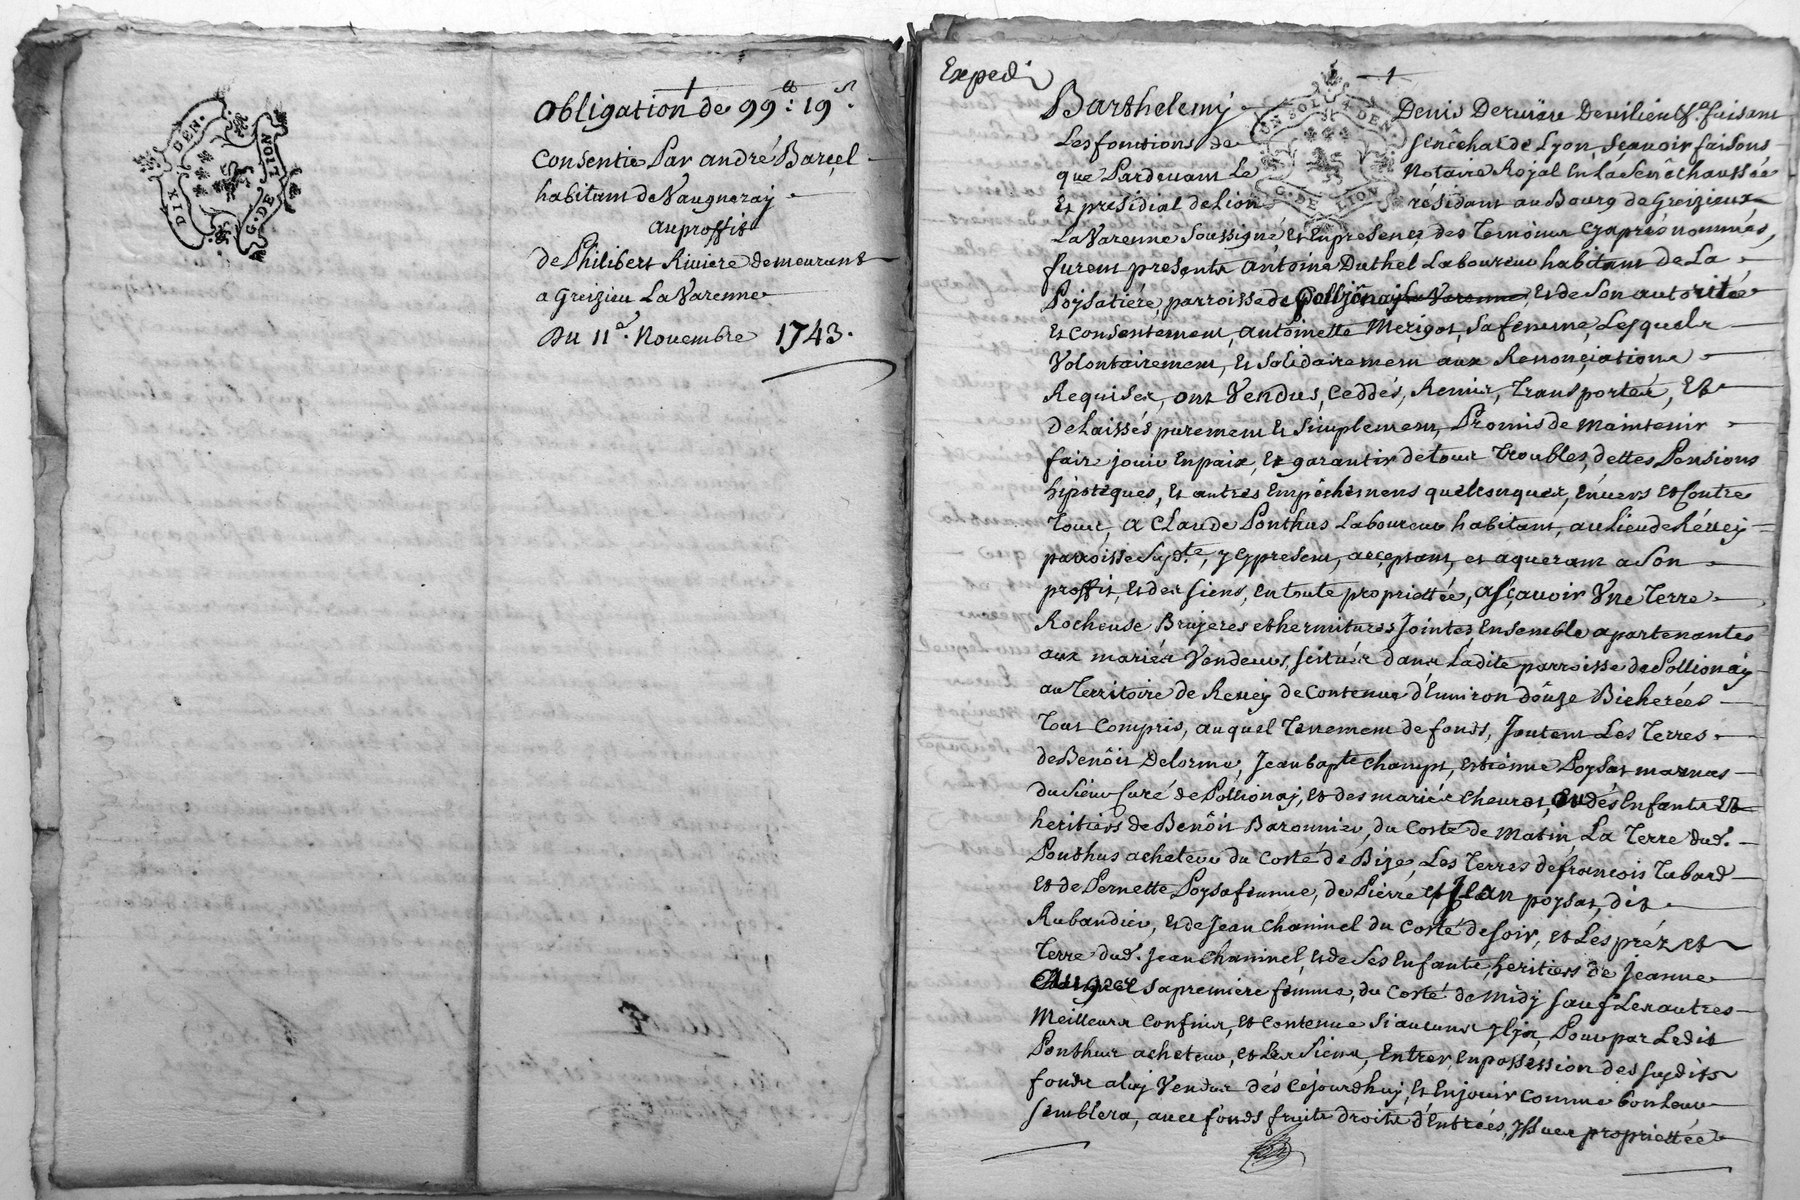 DIX DEN. G. DE LION
obligation de 99ᵗᵗ: 19ˢ.
Consentie Par andré Barcel
habitant de Vaugneray
au proffit
de Philibert Riviere demeurant
a Greizieu La Varenne
Du 11ᵉ. Novembre 1743.
Exped
UN SOL 4 DEN. G. DE LION
Barthelemy Denis Deruiere faisant
Les fonctions de senêchal de Lyon, scavoir faisons
que Pardevant Le Notaire Royal En La Senêchaussée
Et présidial de Lion résidant au Bourg de Greizieux
La Varenne Soussigné Et En presence des Temoins Cy aprés nommés,
furent presents antoine Duthel Laboureur habitant de La
Poysatiére, parroisse de Pollionay La Varenne, Et de Son autorité
Et consentement, antoinette Merigot, Sa femme, Lesquels
Volontairement, Et Solidairement aux Renonciations
Requises, ont Vendus, ceddés, Remis, transportés, Et
deLaissés purement Et Simplement, Promis de maintenir
faire jouir En paix, Et garantir de tous Troubles, dettes Pensions
hipoteques, Et autres Empêchemens quelconques, Envers Et Contre
Tous, a Claude Ponthus Laboureur habitant, au Lieu de Révey
parroisse Susdte, y Cy present, acceptant, et aquerant a Son
proffit, Et des Siens, En toute propriettée, asçavoir Une Terre
Rocheuse Brujeres et hermitures Jointes Ensemble apartenantes
aux mariés Vendeurs, scituée dans Ladite parroisse de Pollionay
au Territoire de Revey de Contenue d'Environ douze Bicherées
Tout Compris, auquel Tenement de fonds, Joutent Les Terres
de Benôit Delorme, Jean bapte Champt, Estienne Poysat marnas
du Sieur Curé de Pollionay, Et des mariés cheurot, Et dés Enfants Et
heritiers de Benôit Baronnier, du Costé de Matin, La Terre dud.
Ponthus acheteur du Costé de Bize, Les Terres de francois Tabard
Et de Pernette Poysa femme, de Pierre et Jean poysat, dit
Rubandier, Et de Jean Chaninel du Costé de Soir, et Les préz et
Terre dud. Jean Chaninel, Et de Ses Enfants, heritiers de Jeanne
Sa premiere femme, du Costé de midy Sauf Les autres
Meilleurs Confins, Et Contenue Si aucuns y a, Pour par Ledit
Ponthus acheteur, Et Les Siens, Entrer, En possession des Susdits
fonds a luy Vendus dés Cejourdhuy, Et En jouir Comme bon Leur
Semblera, avec fonds fruits droits d'Entrées, yssues propriettées